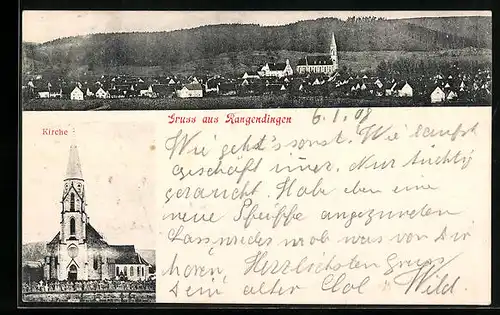 Gruss aus Rangendingen
6.1.08
Kirche
Wie geht's sonst. Wie läuft
geschäft imer. Nur tüchtig
geraucht. Habe eben eine
neue Pfeiffe angezunden
Lass was von Dir
hören, Herzlichsten Gruss
Dein alter Wild.